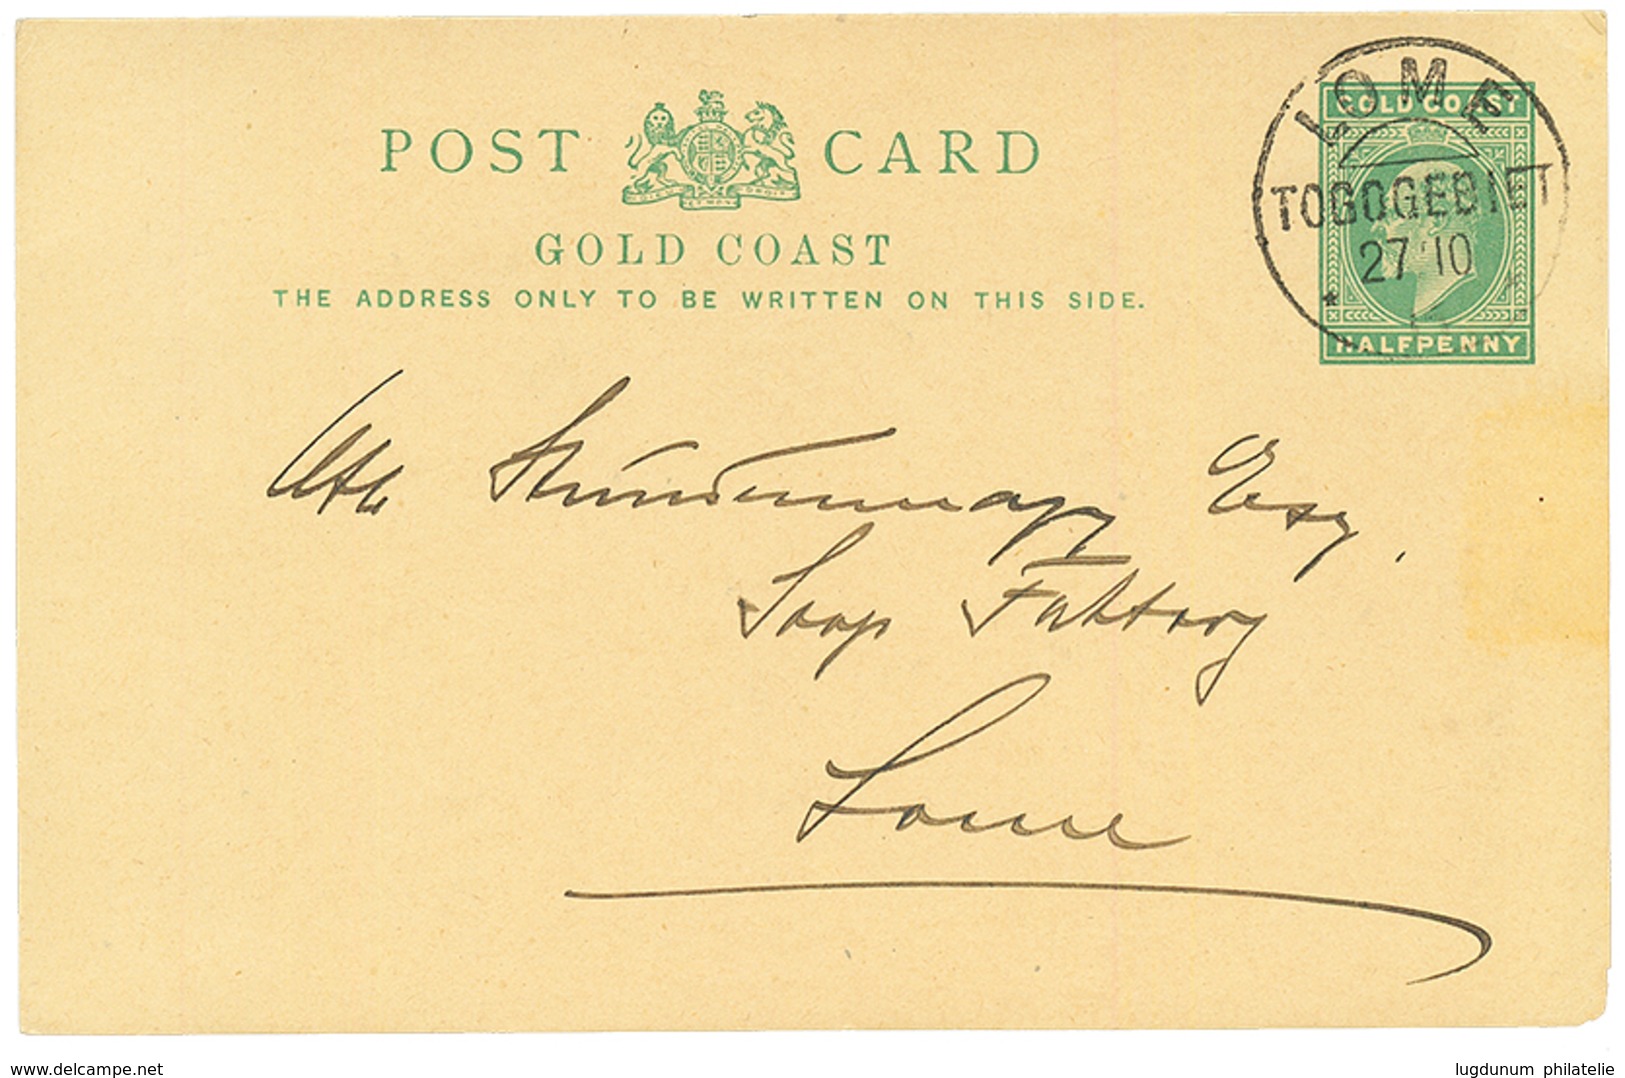 POST CARD
GOLD COAST
THE ADDRESS ONLY TO BE WRITTEN ON THIS SIDE.
GOLD COAST
HALFPENNY
LOME
TOGOGEBIET
27 10
Esq.
Soap Faktory
Lome
www.delcampe.net
lugdunum philatelie